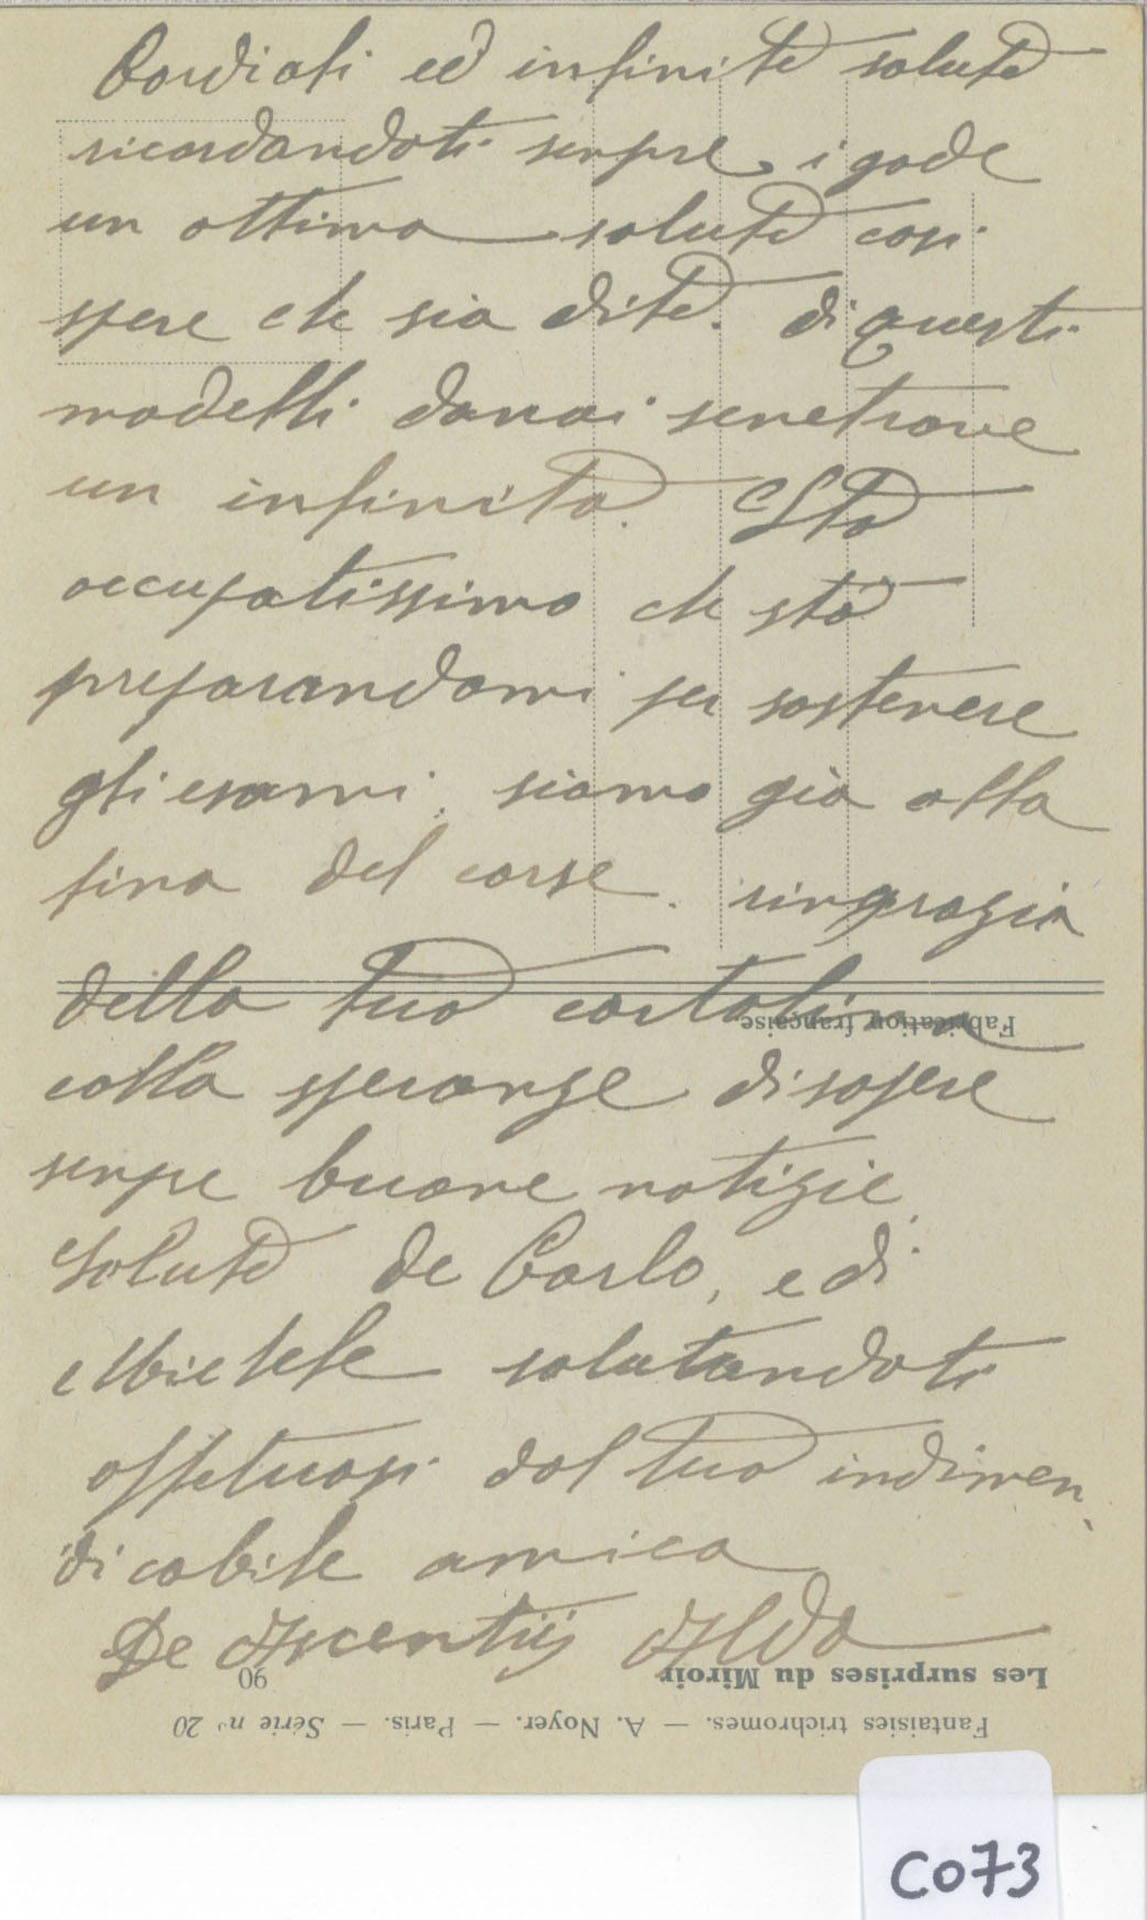 Cordiali ed infinite salute
ricordandoti senpre, i gode
un ottima salute cosi
spere che sia dite. di questi
modelli danai senetrove
un infinita. Sto
occupatissimo che sto
preparandomi per sostenere
gli esami, siamo già alla
fina del corse. ringrazia
della tua cartolina
colla speranze di sapere
senpe buone notizie.
Salute de Carlo, e di
Michele salutandoti
affetuosi dal tuo indimen
dicabile amico
De Ascentiis Aldo
Fabrication française
90
Les surprises du Miroir
Fantaisies trichromes. — A. Noyer. — Paris. — Série n° 20
C073